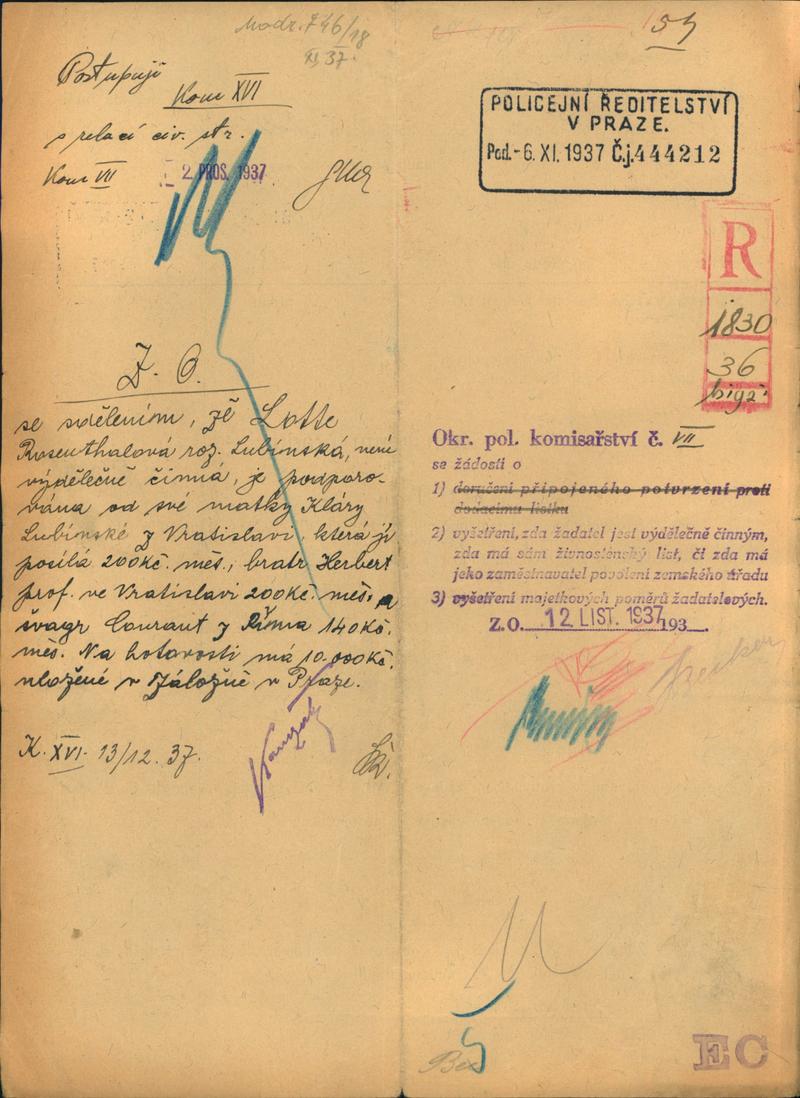 Modr. 746/18
XI 37.
Postupuji
Kom XVI
s relací civ. str.
Kom VII
2 PROS. 1937
Z. O.
se sdělením, že Lotte
Rosenthalová roz. Lubinská, není
výdělečně činná, je podporo-
vána od své matky Kláry
Lubinské z Vratislavi, která jí
posílá 200Kč. měs., bratr Herbert
prof. ve Vratislavi 200Kč. měs. a
švagr Courant z Říma 140Kč.
měs. Na hotovosti má 10.000Kč.
uložené v Záložně v Praze.
K. XVI. 13/12. 37.
POLICEJNÍ ŘEDITELSTVÍ
V PRAZE.
Pod. - 6. XI. 1937 Č.j. 444212
R
1830
36
Okr. pol. komisařství č. VII
se žádostí o
1) doručení připojeného potvrzení proti
dodacímu lístku
2) vyšetření, zda žadatel jest výdělečně činným,
zda má sám živnostenský list, či zda má
jeho zaměstnavatel povolení zemského úřadu
3) vyšetření majetkových poměrů žadatelových.
Z. O. 12 LIST. 1937 193
EC